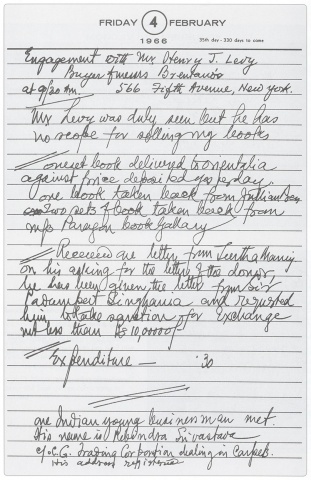 FRIDAY 4 FEBRUARY
1966 35th day - 330 days to come
Engagement with Mr Henry J. Levy
Buyer of messrs Brentano's
at 9/30 Am. 566 Fifth Avenue, New York.
Mr Levy was duly seen but he has
no scope for selling my books
one set book delivered to orientalia
against price deposited yesterday.
one book taken back from
Two sets of book taken back from
m/s Paragon book Gallary
Received one letter from
on his asking for the letter of the donor,
he has been given the letter from Sir
Padampat Singhania and requested
him to take sanction for Exchange
not less than Rs 10,000/-
Expenditure — .30
one Indian young business man met.
His name is Srivastava
c/o C.G. Trading Corportion dealing in Carpets.
His address registered